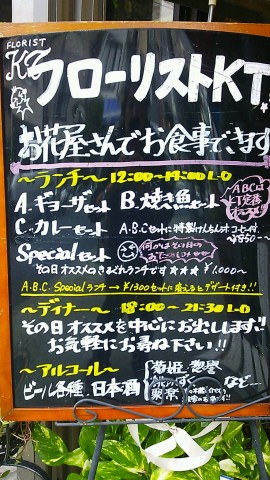 FLORIST
KT フローリストKT
お花屋さんでお食事できます
～ランチ～ 12:00～14:00 L.O
A.ギョーザセット B.焼き魚セット
ABCは
KT定番
C.カレーセット
A.B.Cセットに特製けんちん汁 コーヒー付
¥850
Specialセット
何かはその日の
その日オススメのきまぐれランチです ★★★ ¥1,000～
A.B.C. Special ランチ → ¥1300セットに変えるとデザート付き!!
～ディナー～ 18:00～21:30 L.O
その日オススメを中心にお出しします!!
お気軽にお尋ね下さい!!
～アルコール～
ビール各種.日本酒
菊姫
など…